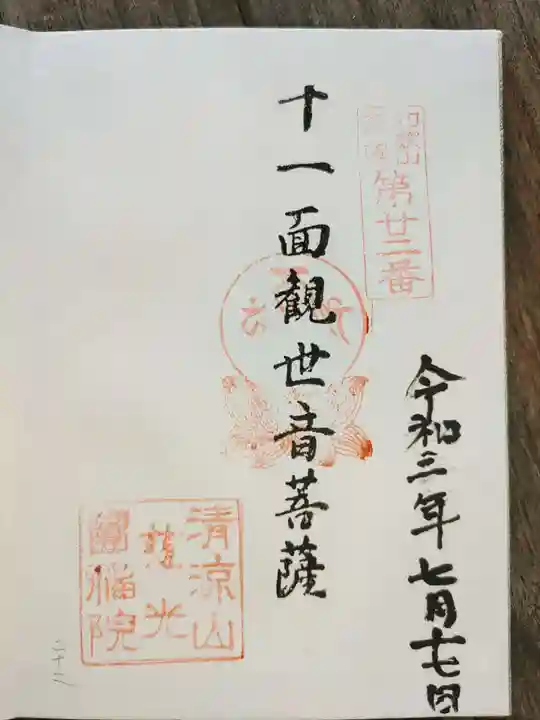 第廿二番
令和三年七月十七日
十一面観世音菩薩
清涼山
慈光
圓福院
二十二